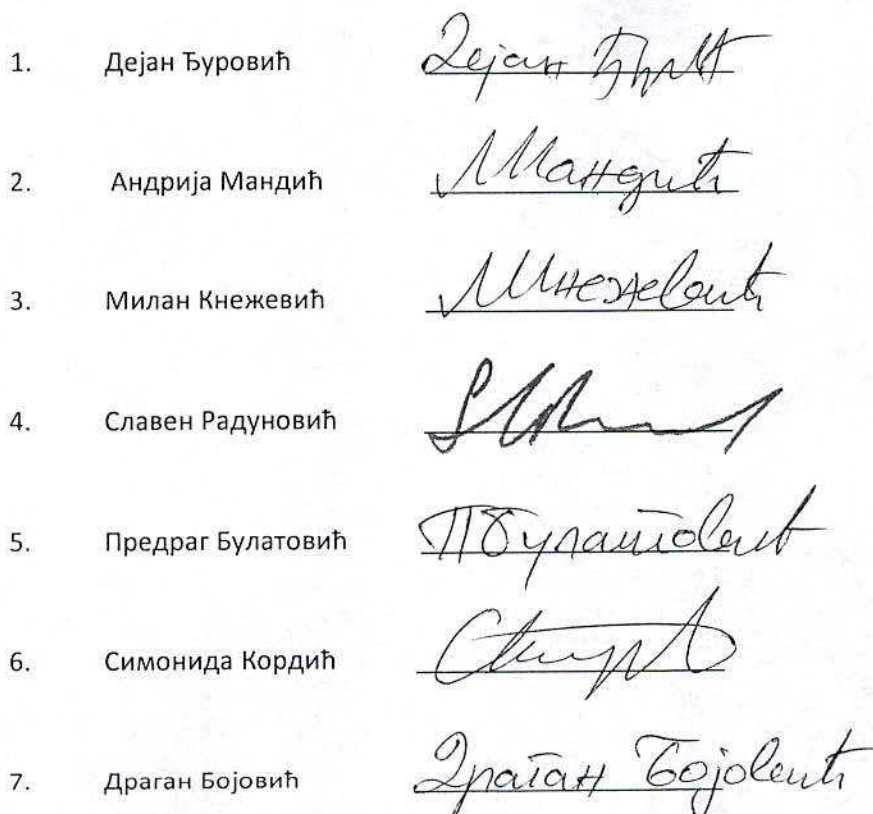 1. Дејан Ђуровић Дејан
2. Андрија Мандић Мандић
3. Милан Кнежевић Кнежевић
4. Славен Радуновић
5. Предраг Булатовић ПБулатовић
6. Симонида Кордић
7. Драган Бојовић Драган Бојовић